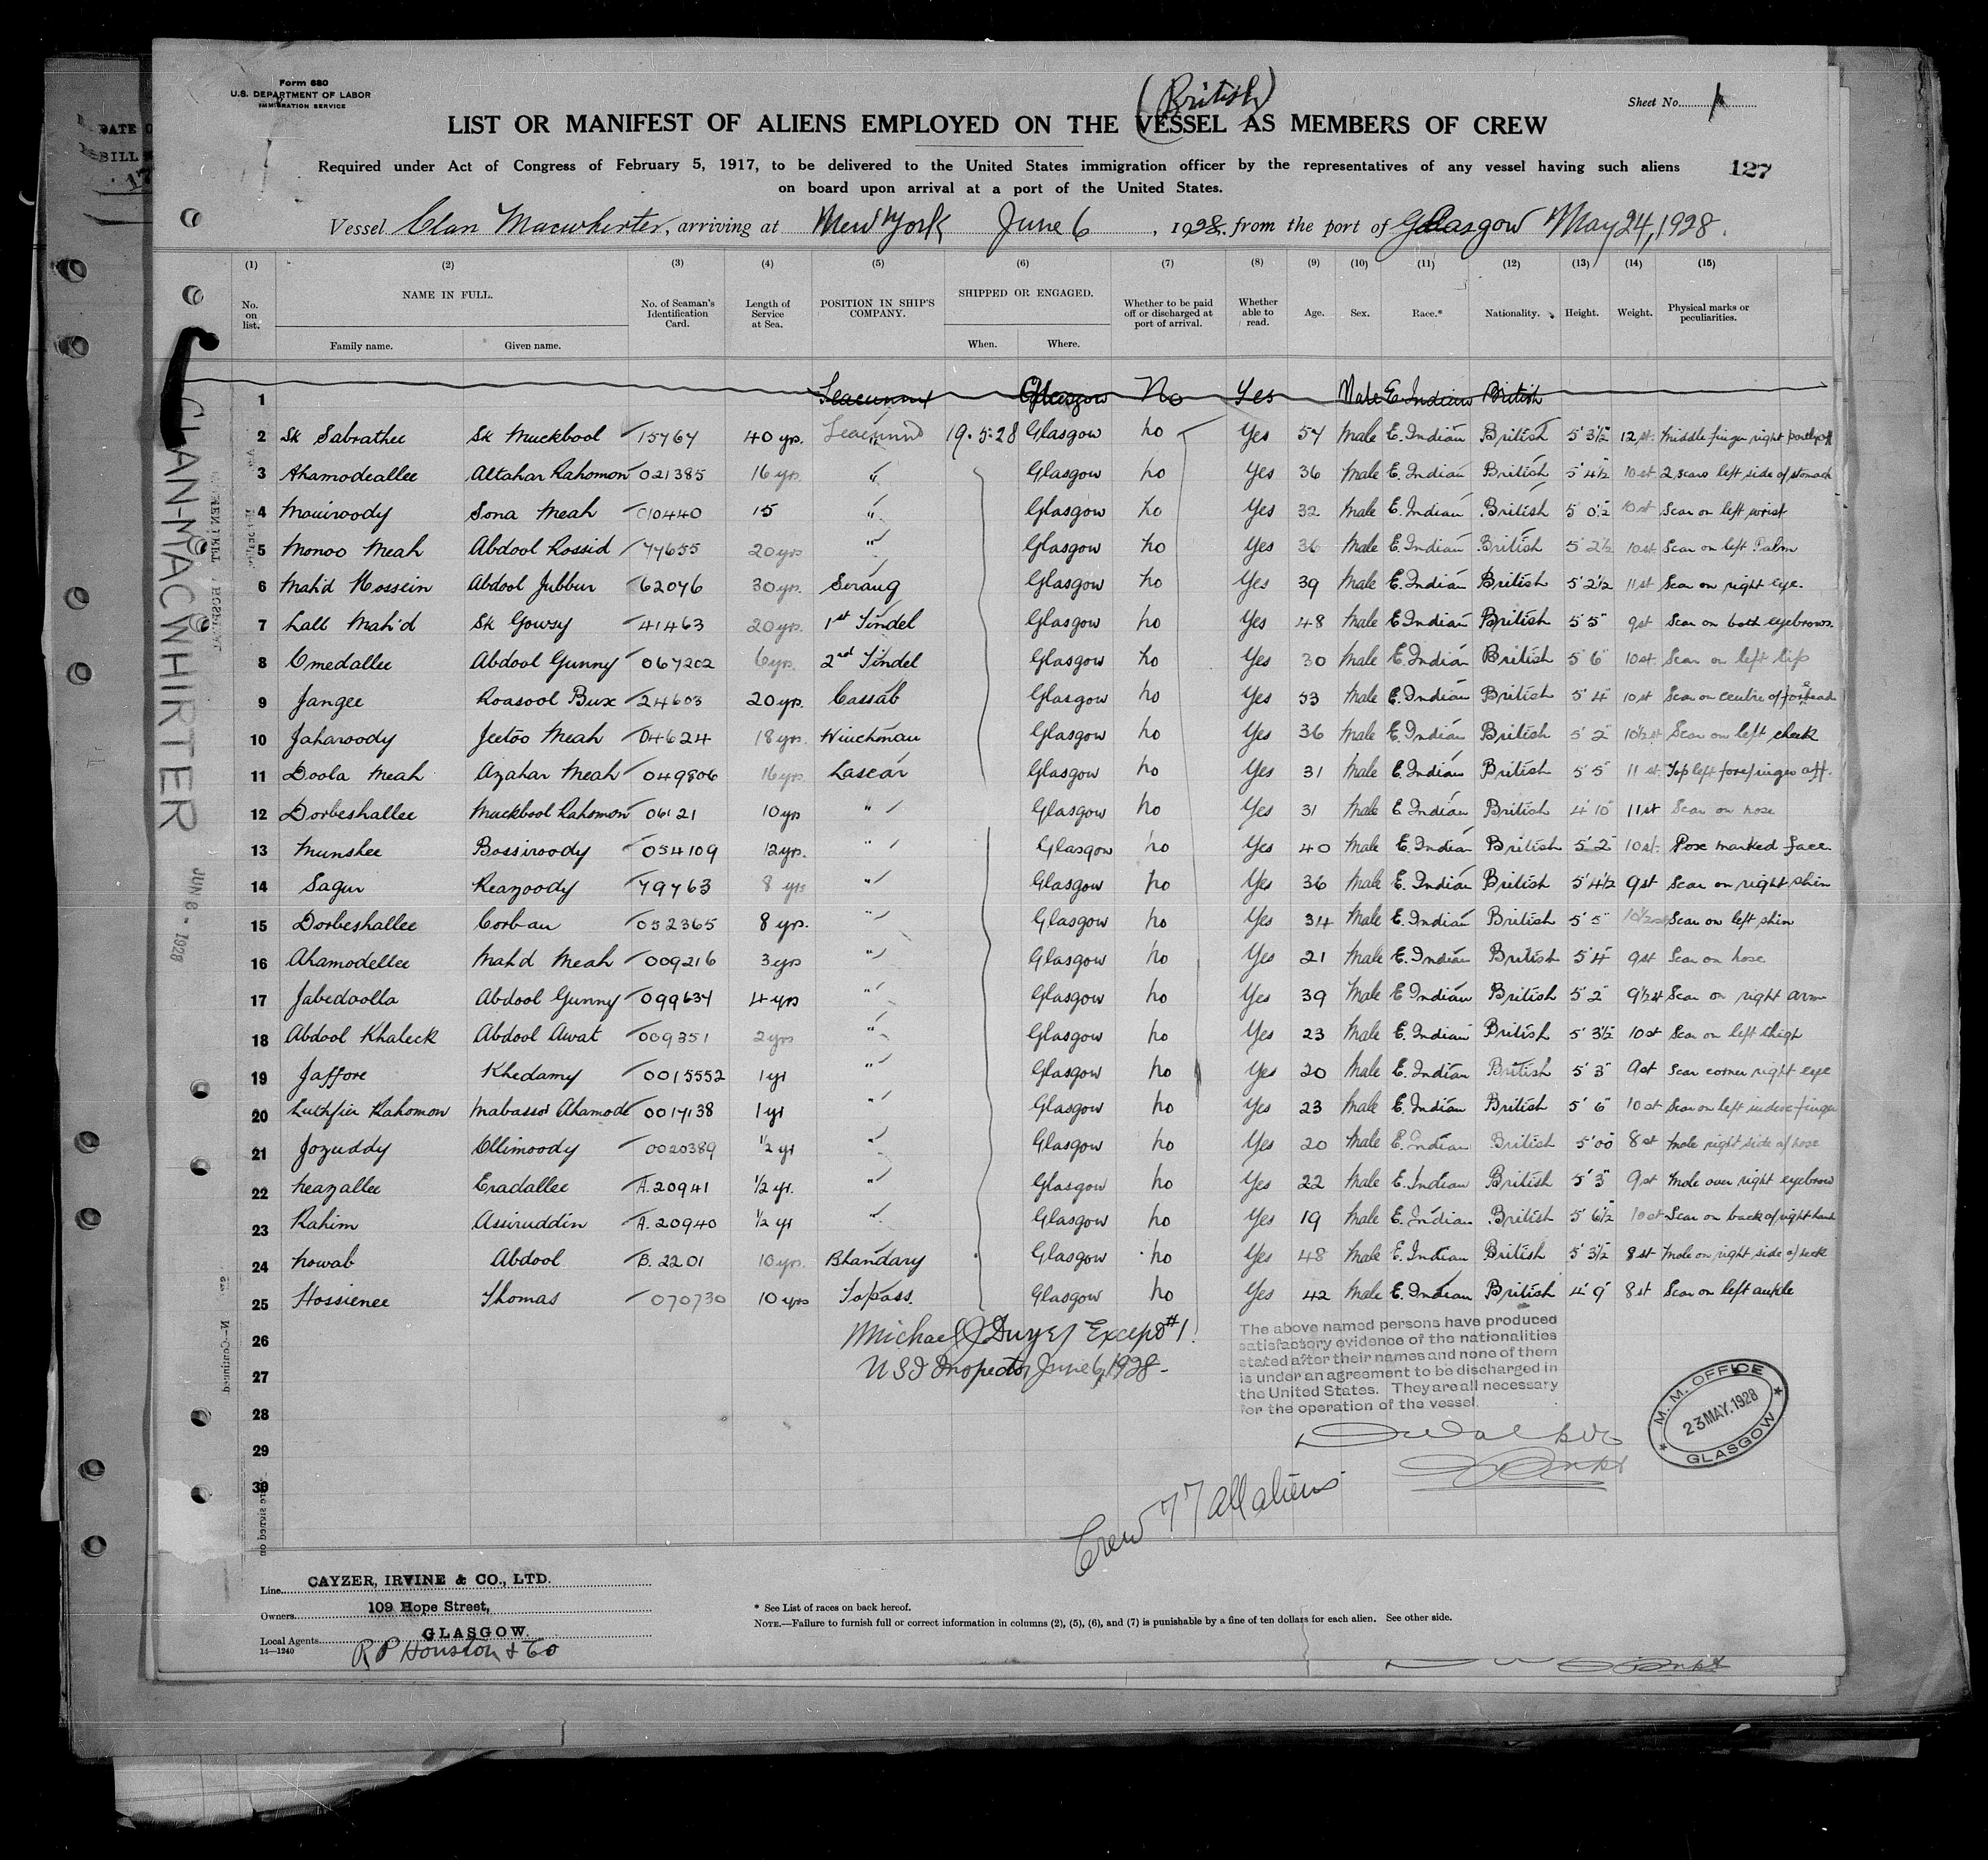 Form 680
U.S. DEPARTMENT OF LABOR
IMMIGRATION SERVICE
(British)
Sheet No. 1
LIST OR MANIFEST OF ALIENS EMPLOYED ON THE VESSEL AS MEMBERS OF CREW
Required under Act of Congress of February 5, 1917, to be delivered to the United States immigration officer by the representatives of any vessel having such aliens
on board upon arrival at a port of the United States.
127
Vessel Clan Macwhirter, arriving at New York June 6, 1928, from the port of Glasgow May 24, 1928.
(1) (2) (3) (4) (5) (6) (7) (8) (9) (10) (11) (12) (13) (14) (15)
No. on list. NAME IN FULL. Family name. Given name. No. of Seaman's Identification Card. Length of Service at Sea. POSITION IN SHIP'S COMPANY. SHIPPED OR ENGAGED. When. Where. Whether to be paid off or discharged at port of arrival. Whether able to read. Age. Sex. Race.* Nationality. Height. Weight. Physical marks or peculiarities.
1 Seacunny Glasgow No Yes Male E Indian British
2 Sk Sabrathee Sk Muckbool 15767 40 yrs. Seacunny 19.5.28 Glasgow No Yes 57 Male E. Indian British 5' 3½ 12 st. Middle finger right
3 Ahamodeallee Altahar Rahomon 021385 16 yrs. " Glasgow No Yes 36 Male E. Indian British 5' 4½ 10 st 2 scars left side of stomach
4 Moniroody Sona Meah 010440 15 " Glasgow No Yes 32 Male E. Indian British 5 0½ 10 st Scar on left wrist
5 Monoo Meah Abdool Rossid 77655 20 yrs " Glasgow No Yes 36 Male E. Indian British 5' 2½ 10 st Scar on left Palm
6 Mah'd Hossein Abdool Jubbur 62076 30 yrs. Serang Glasgow No Yes 39 Male E. Indian British 5' 2½ 11 st Scar on right eye.
7 Lall Mah'd Sk Gowsy 41463 20 yrs. 1st Tindel Glasgow No Yes 48 Male E. Indian British 5' 5" 9 st Scar on both eyebrows.
8 Omedallee Abdool Gunny 067202 6 yrs. 2nd Tindel Glasgow No Yes 30 Male E. Indian British 5' 6" 10 st Scar on left lip
9 Jangee Roasool Bux 24603 20 yrs. Cassab Glasgow No Yes 53 Male E. Indian British 5' 4" 10 st Scar on centre of forehead
10 Jaharoody Jeetoo Meah 04624 18 yrs. Winchman Glasgow No Yes 36 Male E. Indian British 5' 2" 10½ st Scar on left cheek
11 Doola Meah Azahar Meah 049806 16 yrs. Lascar Glasgow No Yes 31 Male E. Indian British 5' 5" 11 st. Top left forefinger off.
12 Dorbeshallee Muckbool Rahomon 06121 10 yrs " Glasgow No Yes 31 Male E. Indian British 4' 10" 11 st Scar on nose
13 Munshee Bossiroody 054109 12 yrs. " Glasgow No Yes 40 Male E. Indian British 5' 2" 10 st. Pox marked face
14 Sagur Reazoody 79763 8 yrs " Glasgow No Yes 36 Male E. Indian British 5' 4½ 9 st Scar on right shin
15 Dorbeshallee Corban 052365 8 yrs. " Glasgow No Yes 34 Male E. Indian British 5' 5" 10½ st Scar on left shin
16 Ahamodellee Mah'd Meah 009216 3 yrs " Glasgow No Yes 21 Male E. Indian British 5' 4" 9 st Scar on nose
17 Jabedoolla Abdool Gunny 099637 4 yrs " Glasgow No Yes 39 Male E. Indian British 5' 2" 9½ st Scar on right arm
18 Abdool Khaleck Abdool Awat 009351 2 yrs " Glasgow No Yes 23 Male E. Indian British 5' 3½ 10 st Scar on left thigh
19 Jaffore Khedamy 0015552 1 yr " Glasgow No Yes 20 Male E. Indian British 5' 3" 9 st Scar corner right eye
20 Luthfier Rahomon Mabassor Ahamode 0017138 1 yr " Glasgow No Yes 23 Male E. Indian British 5' 6" 10 st Scar on left index finger
21 Jozuddy Ollimoody 0020389 ½ yr " Glasgow No Yes 20 Male E. Indian British 5' 00 8 st Mole right side of nose
22 Neazallee Eradallee A. 20941 ½ yr. " Glasgow No Yes 22 Male E. Indian British 5' 3" 9 st Mole over right eyebrow
23 Rahim Assiruddin A. 20940 ½ yr " Glasgow No Yes 19 Male E. Indian British 5' 6½ 10 st Scar on back of right hand
24 Nowab Abdool B. 2201 10 yrs. Bhandary Glasgow No Yes 48 Male E. Indian British 5' 3½ 8 st Mole on right side of neck
25 Hossienee Thomas 070730 10 yrs Topass. Glasgow No Yes 42 Male E. Indian British 4' 9" 8 st Scar on left ankle
26 Michael J Dwyer Except #1
27 U S I Inspector June 6, 1928
28
29
30
The above named persons have produced
satisfactory evidence of the nationalities
stated after their names and none of them
is under an agreement to be discharged in
the United States. They are all necessary
for the operation of the vessel.
M. M. OFFICE
23 MAY. 1928
GLASGOW
Crew 77 all aliens
Line CAYZER, IRVINE & CO., LTD.
Owners 109 Hope Street,
GLASGOW.
Local Agents R P Houston & Co
14—1240
* See List of races on back hereof.
NOTE.—Failure to furnish full or correct information in columns (2), (5), (6), and (7) is punishable by a fine of ten dollars for each alien. See other side.
CLAN-MACWHIRTER
JUN 6 - 1928